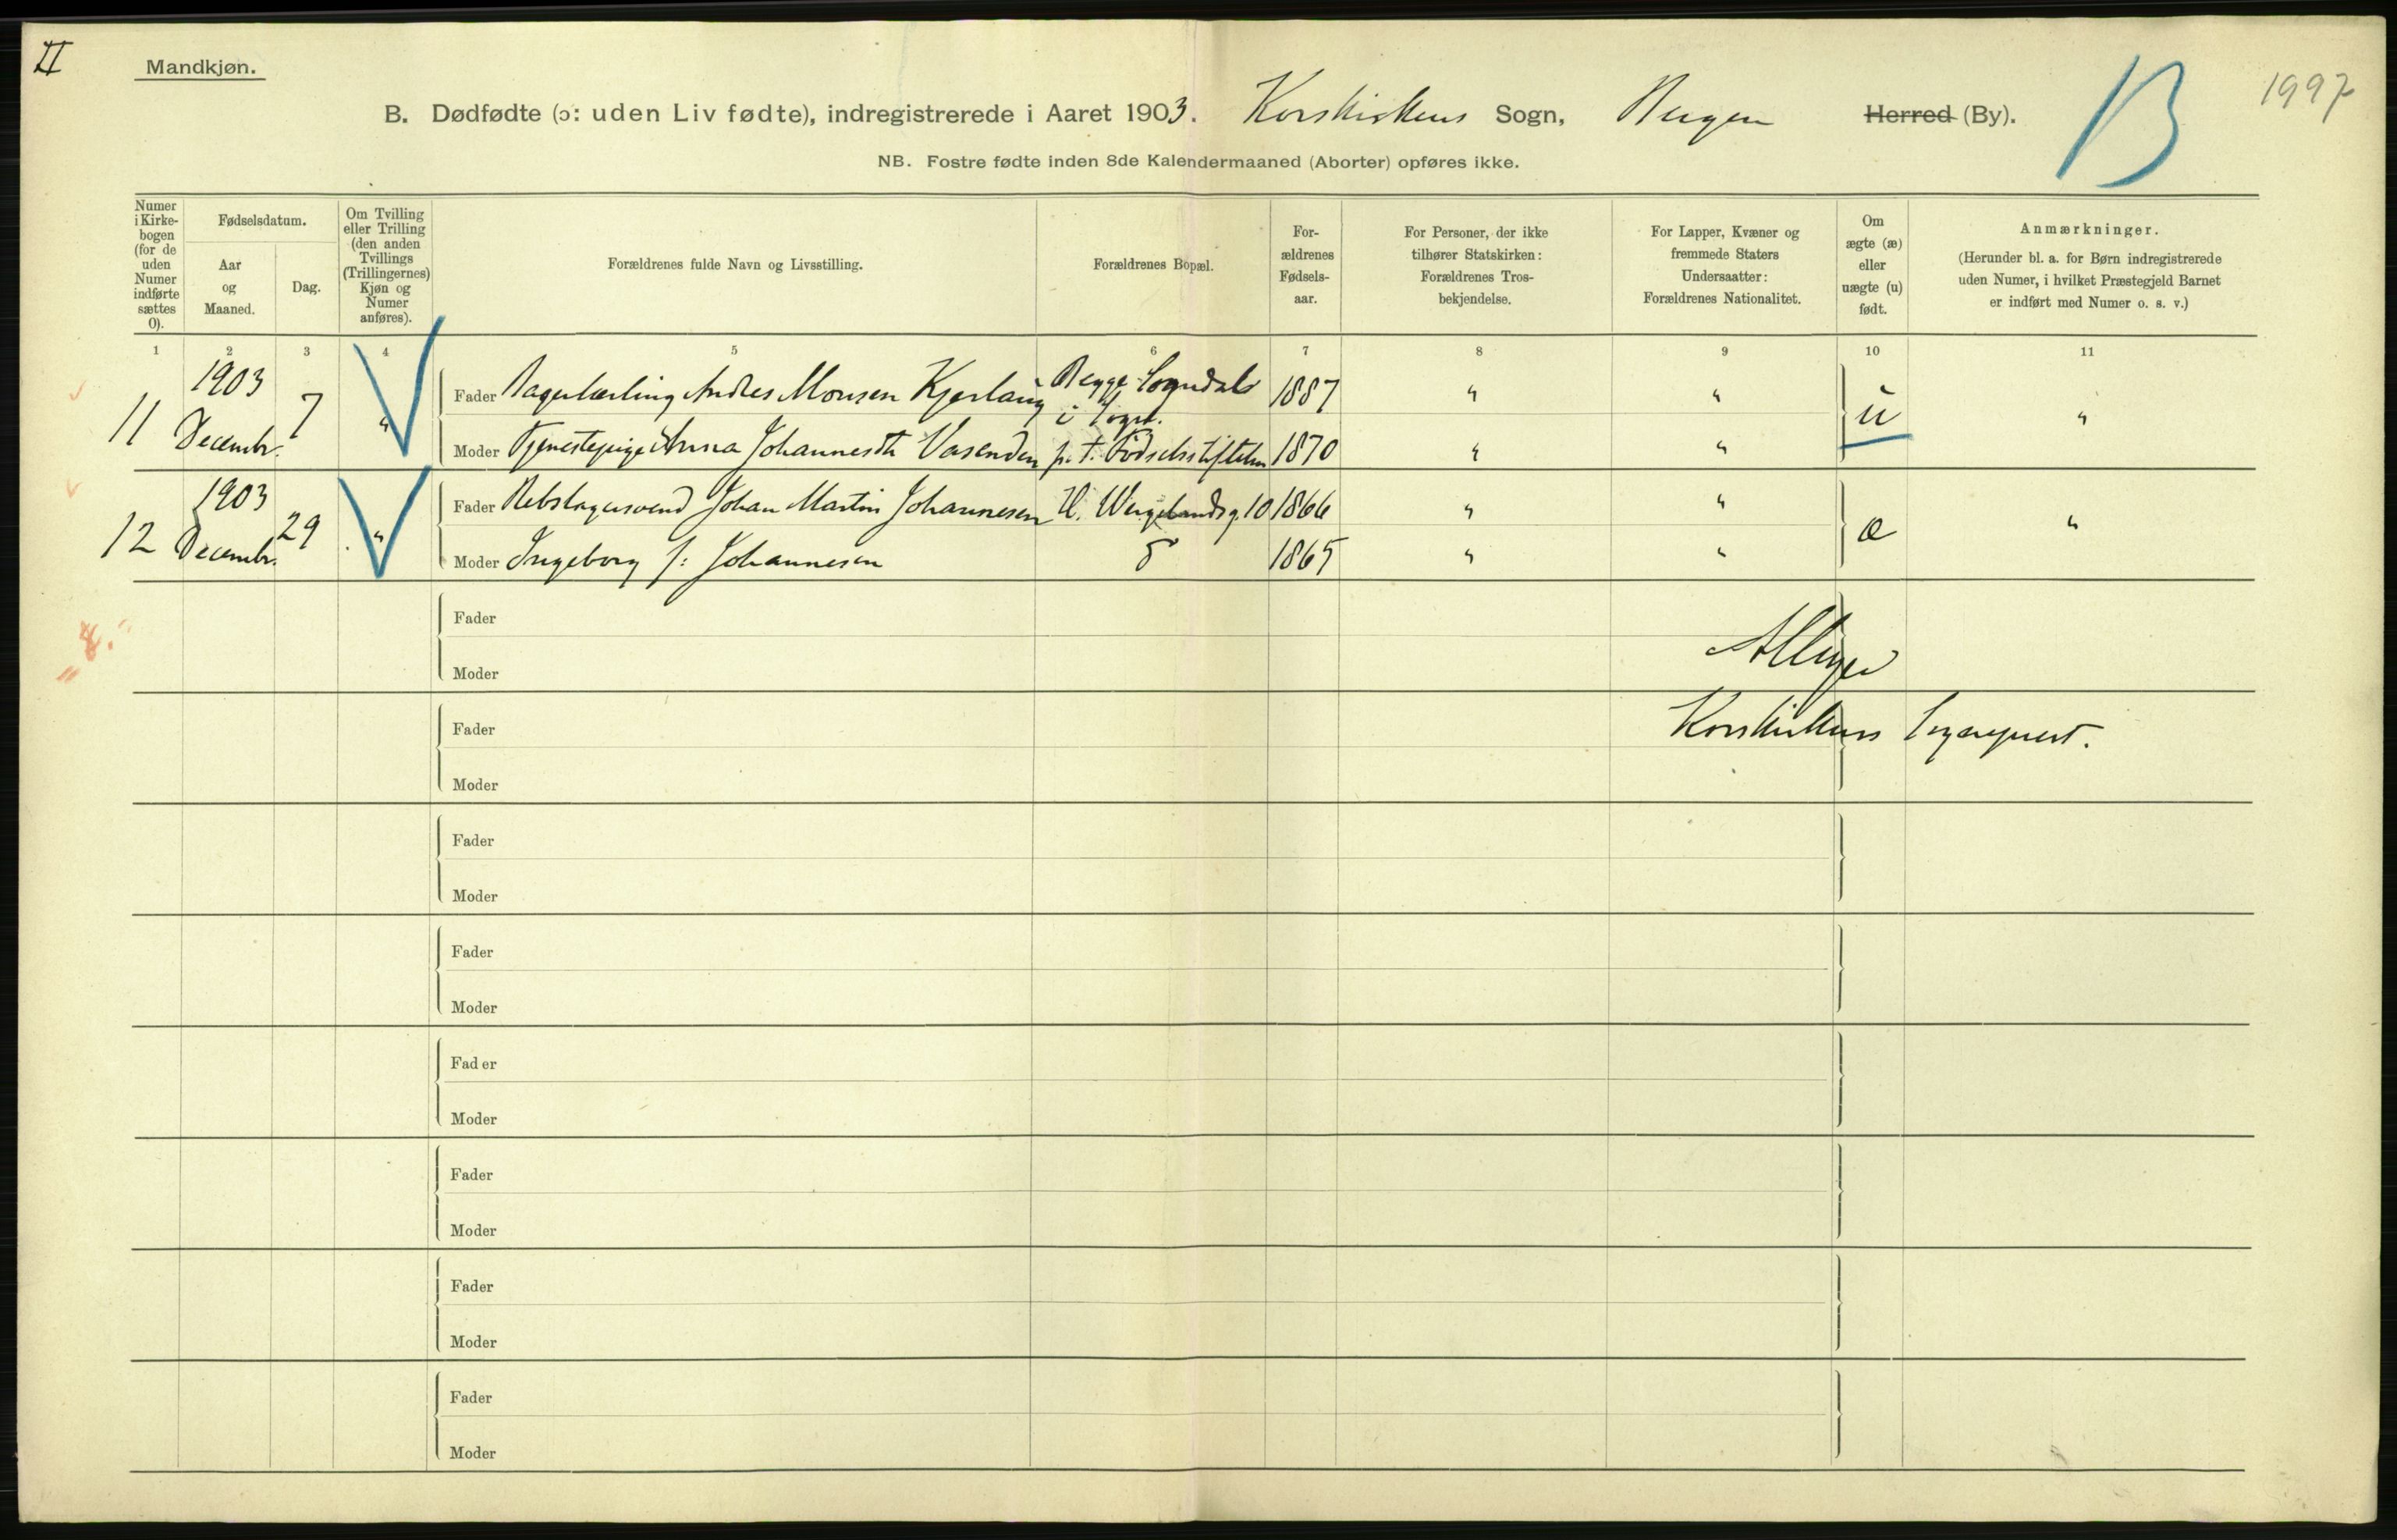 II
Mandkjøn.
1997
B
B. Dødfødte (ɔ: uden Liv fødte), indregistrerede i Aaret 1903. Korskirkens Sogn, Bergen Herred (By).
NB. Fostre fødte inden 8de Kalendermaaned (Aborter) opføres ikke.
Numer i Kirke- bogen (for de uden Numer indførte sættes 0).
Fødselsdatum.
Aar og Maaned.
Dag.
Om Tvilling eller Trilling (den anden Tvillings (Trillingernes) Kjøn og Numer anføres).
Forældrenes fulde Navn og Livsstilling.
Forældrenes Bopæl.
For- ældrenes Fødsels- aar.
For Personer, der ikke tilhører Statskirken: Forældrenes Tros- bekjendelse.
For Lapper, Kvæner og fremmede Staters Undersaatter: Forældrenes Nationalitet.
Om ægte (æ) eller uægte (u) født.
Anmærkninger. (Herunder bl. a. for Børn indregistrerede uden Numer, i hvilket Præstegjeld Barnet er indført med Numer o. s. v.)
1 2 3 4 5 6 7 8 9 10 11
11 1903 Decembr. 7 " Fader Bagerlærling Andres Monsen Kjerlaug Begge Sogndal i Sogn. 1887 " " u "
Moder Tjenestepige Anna Johannesdtr Vasenden p. t. Fødselsstiftelsen 1870 " "
12 1903 Decembr. 29 " Fader Rebslagersvend Johan Martin Johannesen H. Wergelandsg. 10 1866 " " æ "
Moder Ingeborg f: Johannesen 1865 " "
Fader
Moder
8.
Korskirkens Sogneprest.
Fader
Moder
Fader
Moder
Fader
Moder
Fader
Moder
Fader
Moder
Fader
Moder
Fader
Moder